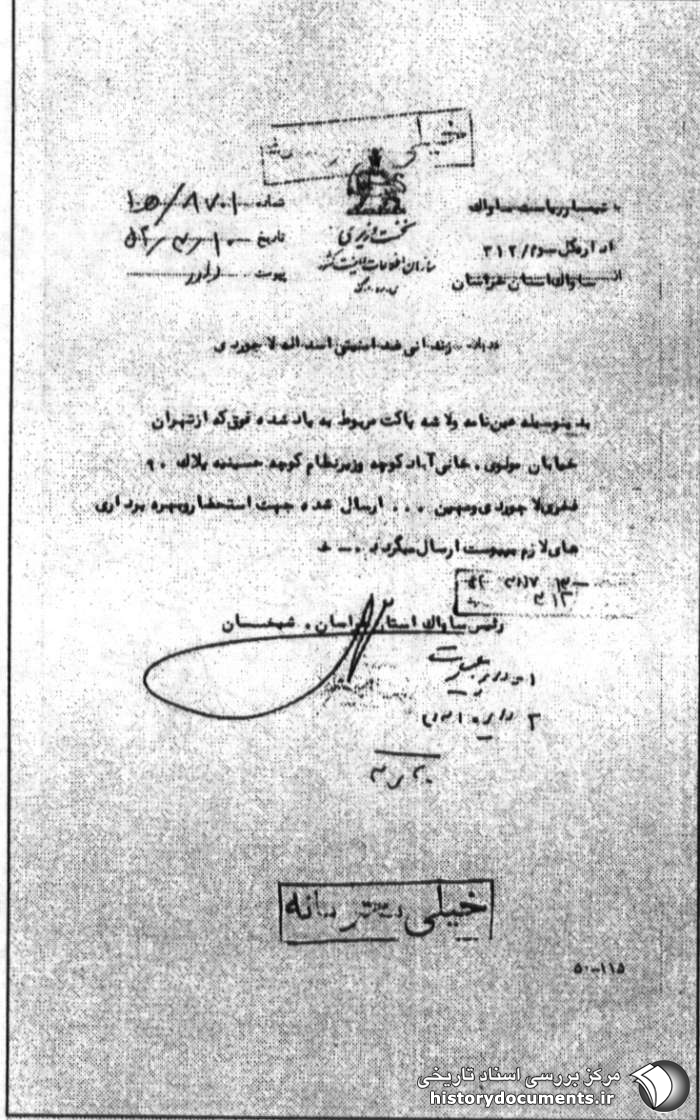 خیلی
به تیمسار ریاست ساواک
شماره ۸۷۰۱/۱۰۵
نخست وزیری
اداره کل سوم/۳۱۲
تاریخ
سازمان اطلاعات و امنیت کشور
از ساواک استان خراسان
پیوست دارد
درباره زندانی ضد امنیتی اسداله لاجوردی
بدینوسیله عین نامه ولاشه پاکت مربوط به یاد شده فوق که ازتهران
خیابان مولوی . خانی آباد کوچه وزیرنظام کوچه حسینیه پلاک ۹۰
فخری لاجوردی ومهین ... ارسال شده جهت استحضار وبهره برداری
های لازم بپیوست ارسال میگردد
رئیس ساواک استان خراسان . شیخان
۱
۲
خیلی محرمانه
۵۰-۱۱۵
مرکز بررسی اسناد تاریخی
historydocuments.ir